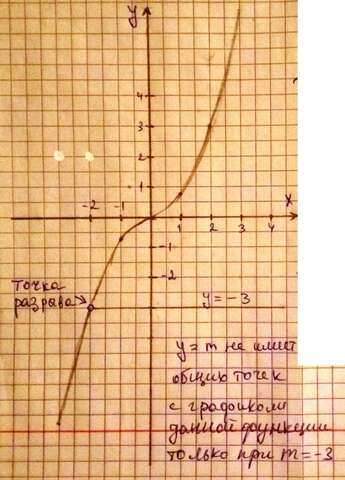 y
4
3
2
1
x
-2 -1
2 3 4
-1
-2
точка
разрыва
y = -3
y = m не имеет
общих точек
с графиком
данной функции
только при m = -3